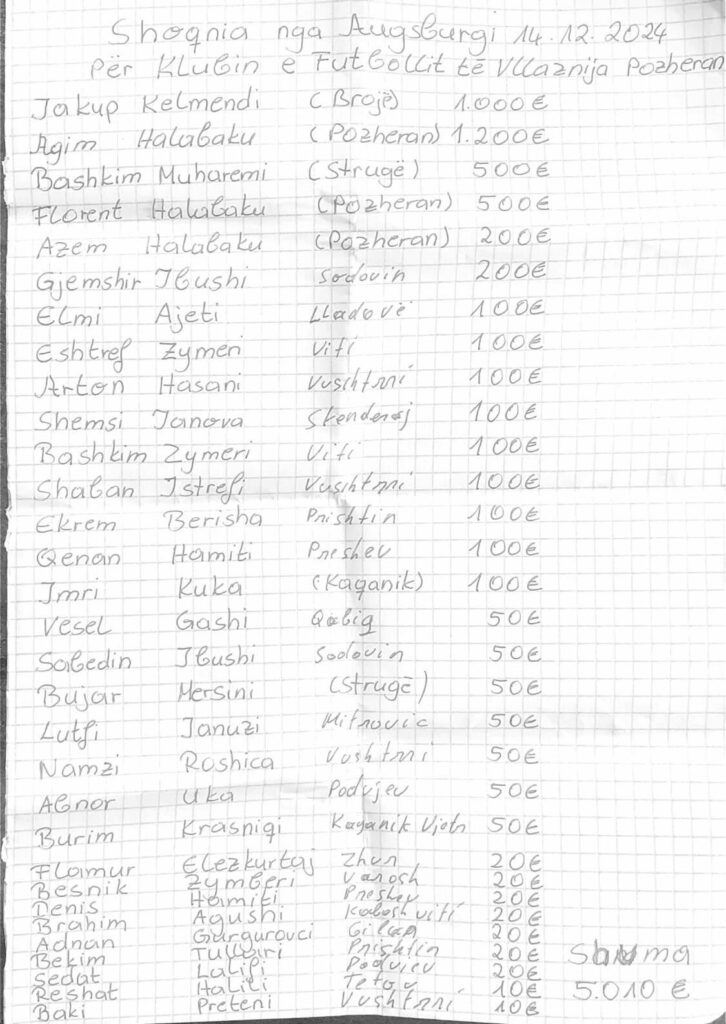 Shoqnia nga Augsburgi 14.12.2024
Për Klubin e Futbollit të Vllaznija Pozheran
Jakup Kelmendi (Brojë) 1.000€
Agim Halabaku (Pozheran) 1.200€
Bashkim Muharemi (Strugë) 500€
Florent Halabaku (Pozheran) 500€
Azem Halabaku (Pozheran) 200€
Gjemshir Ibushi Sodovin 200€
Elmi Ajeti Lladovë 100€
Eshtref Zymeri Viti 100€
Arton Hasani Vuschtrri 100€
Shemsi Janova Skenderaj 100€
Bashkim Zymeri Viti 100€
Shaban Istrefi Vuschtrri 100€
Ekrem Berisha Prishtin 100€
Qenan Hamiti Preshev 100€
Imri Kuka (Kaqanik) 100€
Vesel Gashi 50€
Sabedin Ibushi Sodovin 50€
Bujar Mersini (Strugë) 50€
Lutfi Januzi Mitrovic 50€
Namzi Roshica Vushtrri 50€
Abnor Uka Podujev 50€
Burim Krasniqi Kaqanik Vjetr 50€
Flamur Elezkurtaj Zhur 20€
Besnik Zymberi Varosh 20€
Denis Hamiti Preshev 20€
Brahim Agushi Kabash viti 20€
Adnan Gurgurovci Gilan 20€
Bekim Prishtin 20€
Sedat Latifi Podujev 20€
Reshat Halili Tetov 10€
Baki Preteni Vushtrri 10€
Shuma
5.010 €